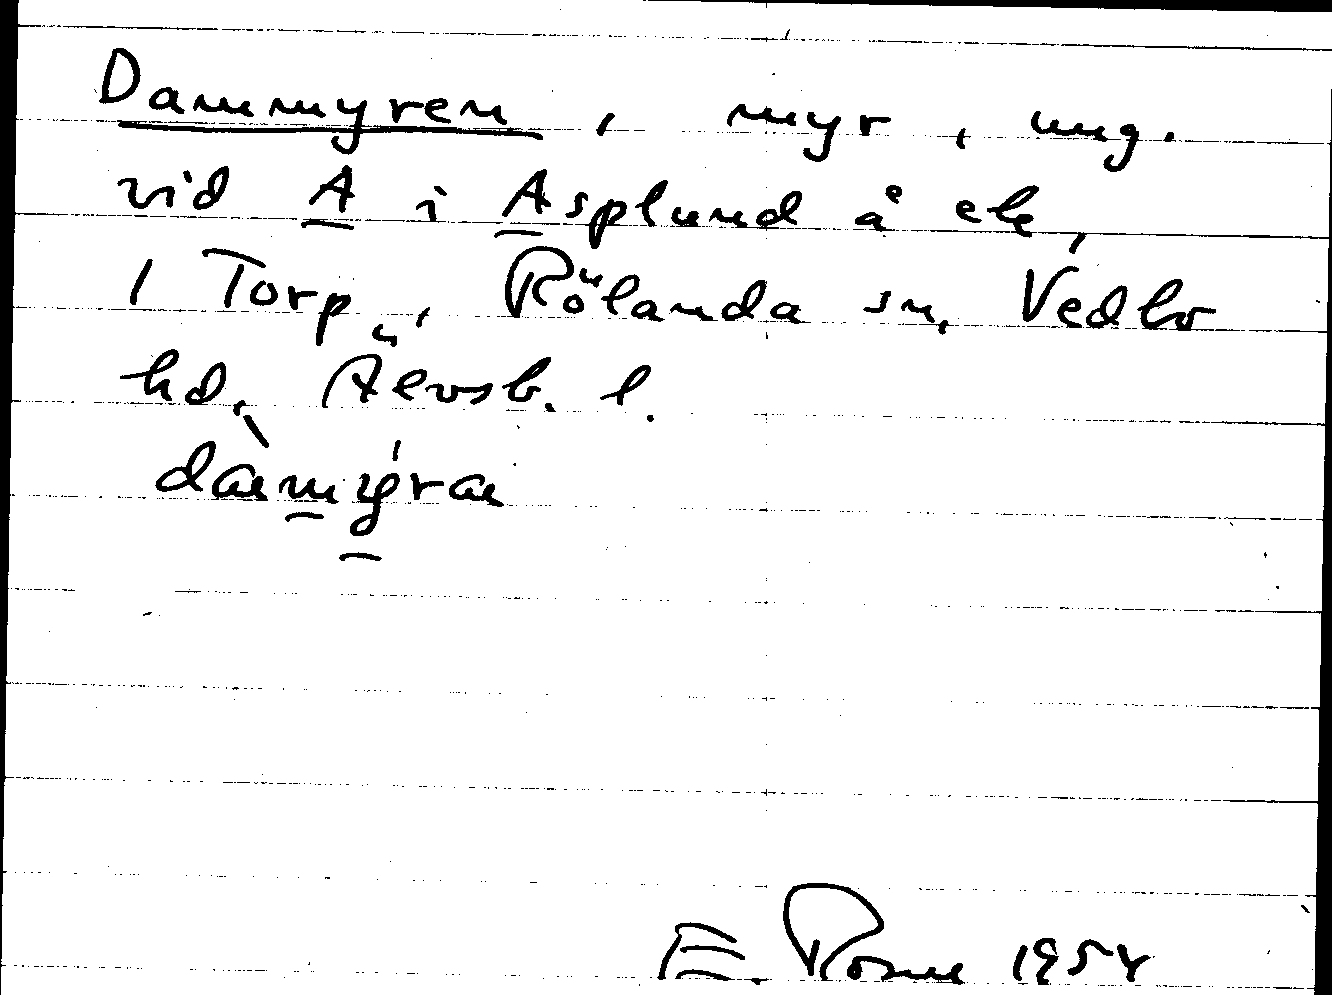 Dammyren, myr, ung.
vid A i Asplund å ek,
1 Torp, Rölanda sn, Vedbo
hd, Älvsb. l.
E. 1954